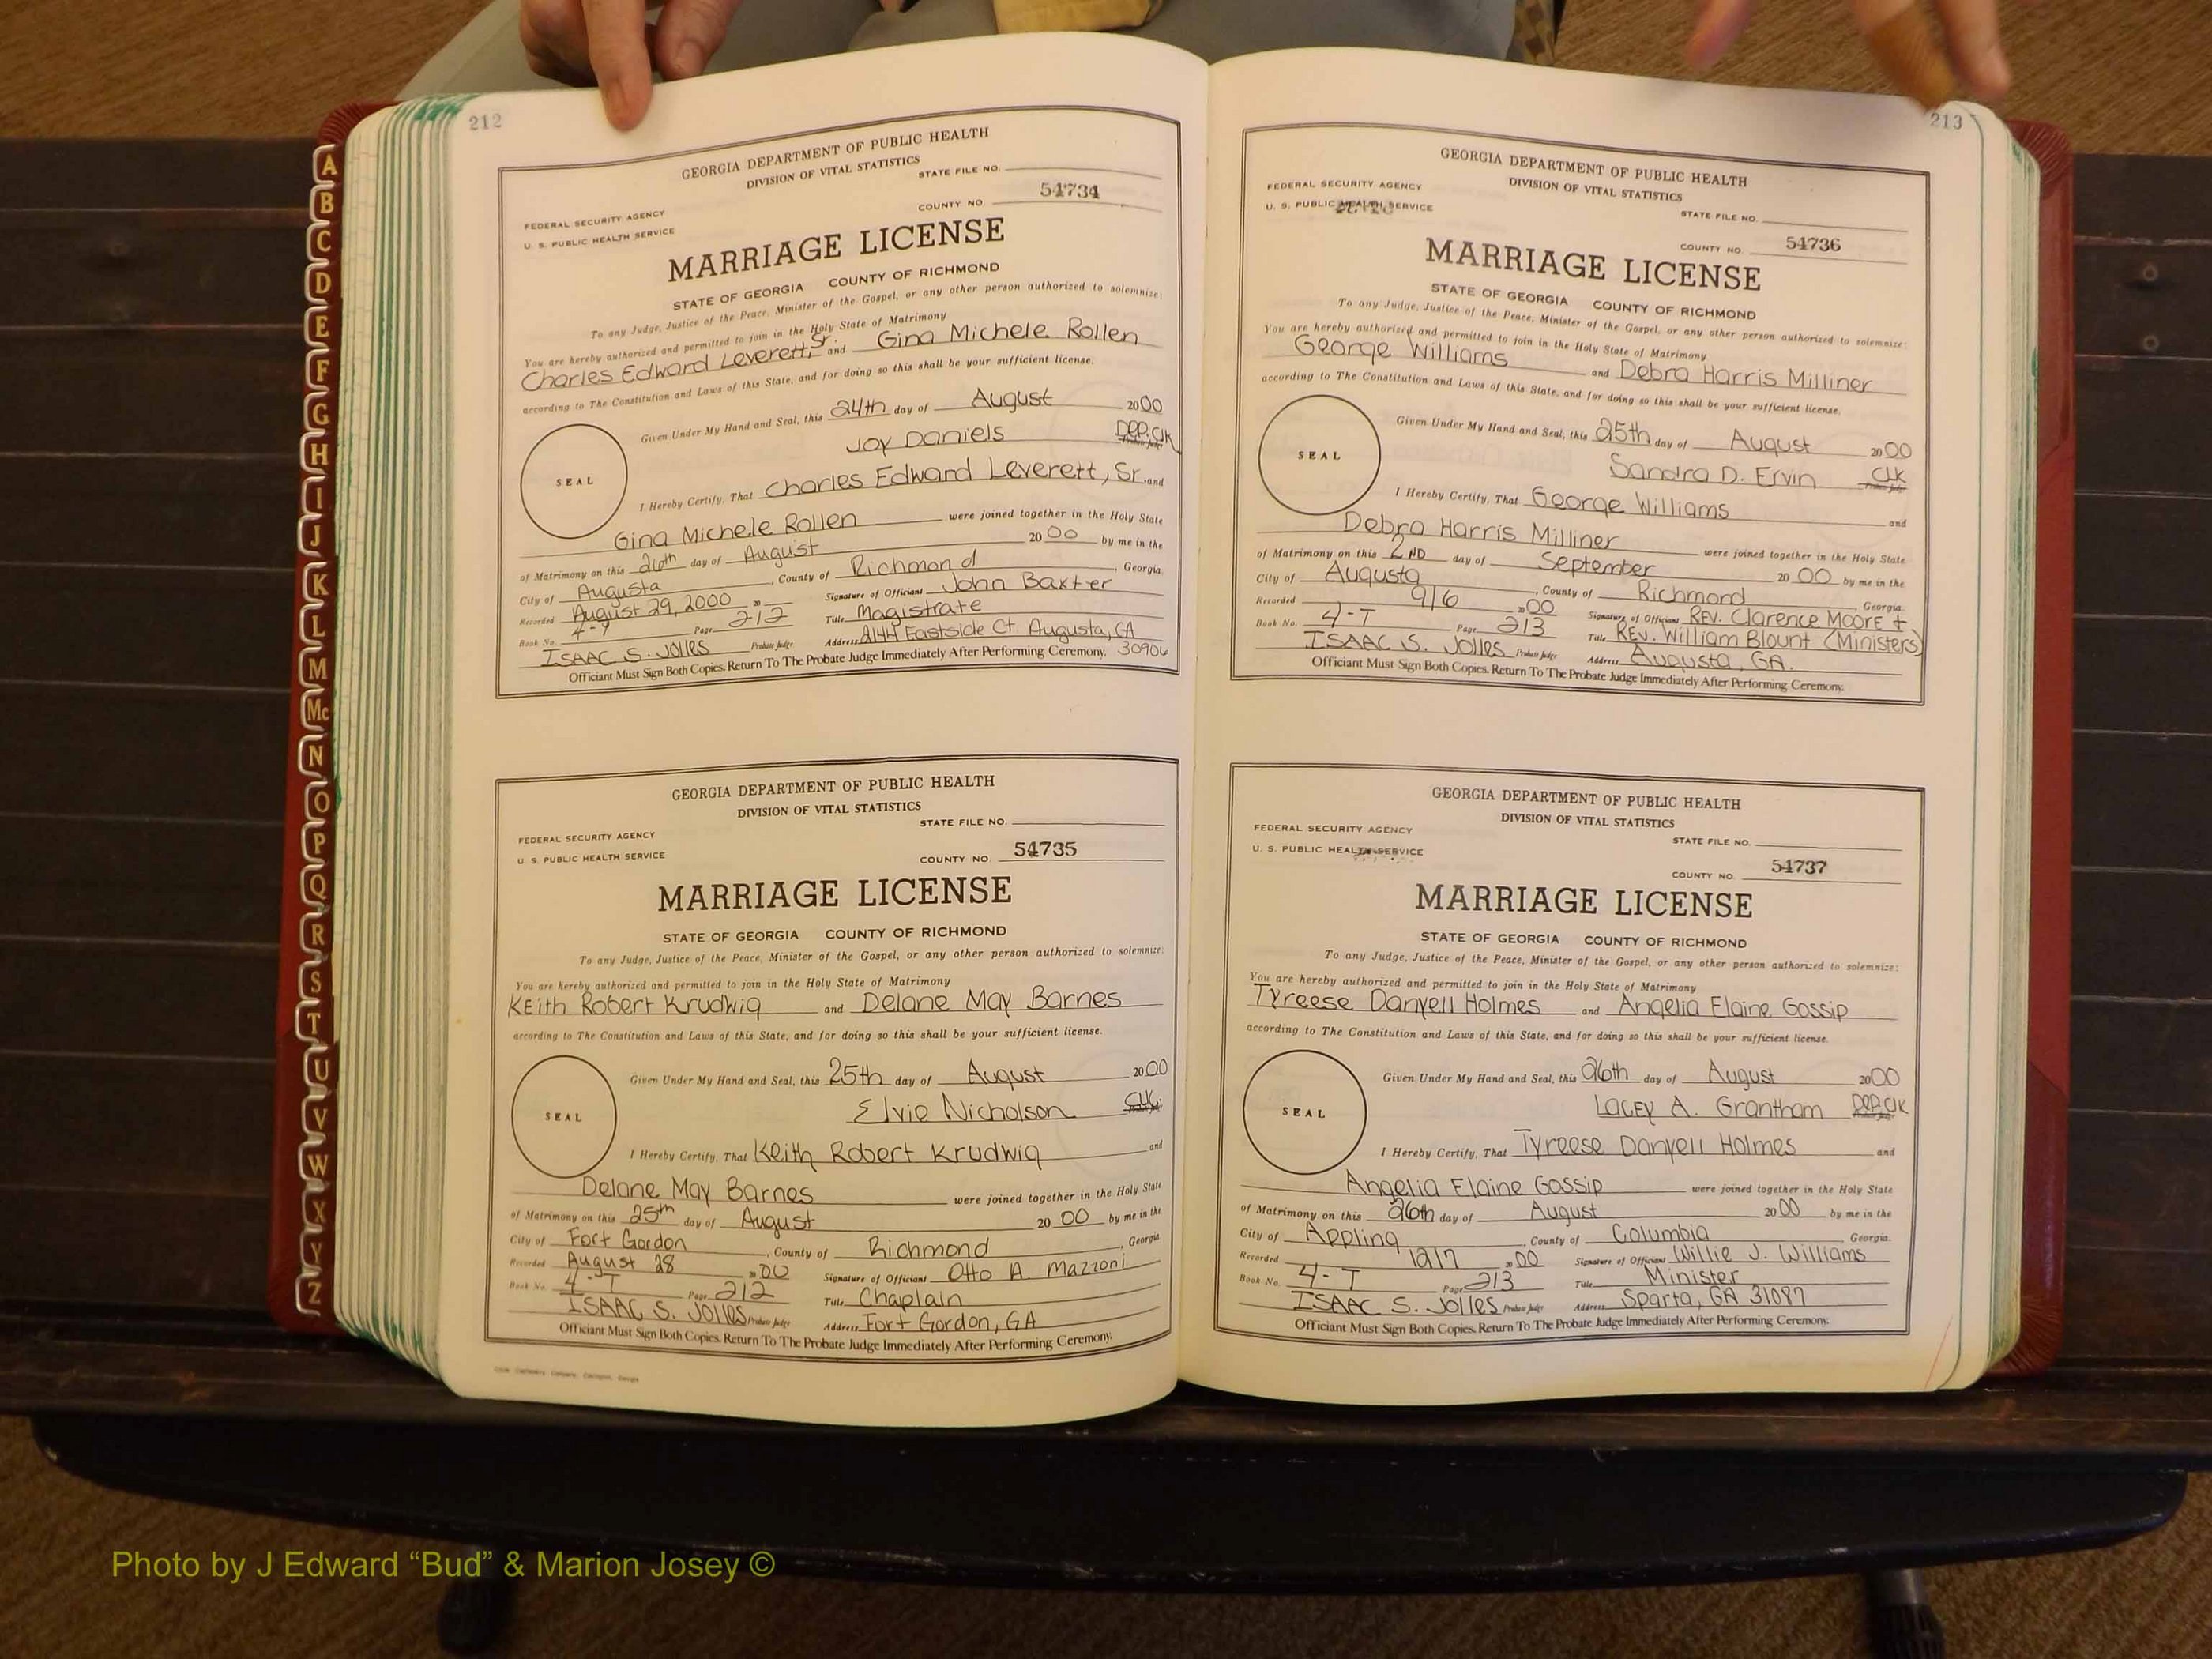 212
GEORGIA DEPARTMENT OF PUBLIC HEALTH
DIVISION OF VITAL STATISTICS
STATE FILE NO.
FEDERAL SECURITY AGENCY
U. S. PUBLIC HEALTH SERVICE
COUNTY NO. 54734
MARRIAGE LICENSE
STATE OF GEORGIA COUNTY OF RICHMOND
To any Judge, Justice of the Peace, Minister of the Gospel, or any other person authorized to solemnize:
You are hereby authorized and permitted to join in the Holy State of Matrimony
Charles Edward Leverett, Sr. and Gina Michele Rollen
according to The Constitution and Laws of this State, and for doing so this shall be your sufficient license.
Given Under My Hand and Seal, this 24th day of August 2000
Joy Daniels Dep. Clk
SEAL
I Hereby Certify, That Charles Edward Leverett, Sr. and
Gina Michele Rollen were joined together in the Holy State
of Matrimony on this 26th day of August 20 00 by me in the
City of Augusta, County of Richmond, Georgia.
Recorded August 29, 2000 20 Signature of Officiant John Baxter
Book No. 4-T Page 212 Title Magistrate
ISAAC S. Jolles Probate Judge Address 2144 Eastside Ct. Augusta, GA 30906
Officiant Must Sign Both Copies. Return To The Probate Judge Immediately After Performing Ceremony.
GEORGIA DEPARTMENT OF PUBLIC HEALTH
DIVISION OF VITAL STATISTICS
STATE FILE NO.
FEDERAL SECURITY AGENCY
U. S. PUBLIC HEALTH SERVICE
COUNTY NO. 54735
MARRIAGE LICENSE
STATE OF GEORGIA COUNTY OF RICHMOND
To any Judge, Justice of the Peace, Minister of the Gospel, or any other person authorized to solemnize:
You are hereby authorized and permitted to join in the Holy State of Matrimony
Keith Robert Krudwig and Delane May Barnes
according to The Constitution and Laws of this State, and for doing so this shall be your sufficient license.
Given Under My Hand and Seal, this 25th day of August 2000
Elvie Nicholson Clk
SEAL
I Hereby Certify, That Keith Robert Krudwig and
Delane May Barnes were joined together in the Holy State
of Matrimony on this 25th day of August 20 00 by me in the
City of Fort Gordon, County of Richmond, Georgia.
Recorded August 28 20 00 Signature of Officiant Otto A. Mazzoni
Book No. 4-T Page 212 Title Chaplain
ISAAC S. Jolles Probate Judge Address Fort Gordon, GA
Officiant Must Sign Both Copies. Return To The Probate Judge Immediately After Performing Ceremony.
213
GEORGIA DEPARTMENT OF PUBLIC HEALTH
DIVISION OF VITAL STATISTICS
FEDERAL SECURITY AGENCY
U. S. PUBLIC HEALTH SERVICE
STATE FILE NO.
COUNTY NO. 54736
MARRIAGE LICENSE
STATE OF GEORGIA COUNTY OF RICHMOND
To any Judge, Justice of the Peace, Minister of the Gospel, or any other person authorized to solemnize:
You are hereby authorized and permitted to join in the Holy State of Matrimony
George Williams and Debra Harris Milliner
according to The Constitution and Laws of this State, and for doing so this shall be your sufficient license.
Given Under My Hand and Seal, this 25th day of August 2000
Sandra D. Ervin Clk
SEAL
I Hereby Certify, That George Williams and
Debra Harris Milliner were joined together in the Holy State
of Matrimony on this 2ND day of September 20 00 by me in the
City of Augusta, County of Richmond, Georgia.
Recorded 9/6 2000 Signature of Officiant REV. Clarence Moore +
Book No. 4-T Page 213 Title REV. William Blount (Ministers)
ISAAC S. Jolles Probate Judge Address Augusta, GA.
Officiant Must Sign Both Copies. Return To The Probate Judge Immediately After Performing Ceremony.
GEORGIA DEPARTMENT OF PUBLIC HEALTH
DIVISION OF VITAL STATISTICS
FEDERAL SECURITY AGENCY
U. S. PUBLIC HEALTH SERVICE
STATE FILE NO.
COUNTY NO. 54737
MARRIAGE LICENSE
STATE OF GEORGIA COUNTY OF RICHMOND
To any Judge, Justice of the Peace, Minister of the Gospel, or any other person authorized to solemnize:
You are hereby authorized and permitted to join in the Holy State of Matrimony
Tyreese Danyell Holmes and Angelia Elaine Gossip
according to The Constitution and Laws of this State, and for doing so this shall be your sufficient license.
Given Under My Hand and Seal, this 26th day of August 2000
Lacey A. Grantham Dep. Clk
SEAL
I Hereby Certify, That Tyreese Danyell Holmes and
Angelia Elaine Gossip were joined together in the Holy State
of Matrimony on this 26th day of August 2000 by me in the
City of Appling, County of Columbia Georgia.
Recorded 12/7 2000 Signature of Officiant Willie J. Williams
Book No. 4-T Page 213 Title Minister
ISAAC S. Jolles Probate Judge Address Sparta, GA 31087
Officiant Must Sign Both Copies. Return To The Probate Judge Immediately After Performing Ceremony.
A
B
C
D
E
F
G
H
I
J
K
L
M
Mc
N
O
P
Q
R
S
T
U
V
W
X
Y
Z
Photo by J Edward “Bud” & Marion Josey ©